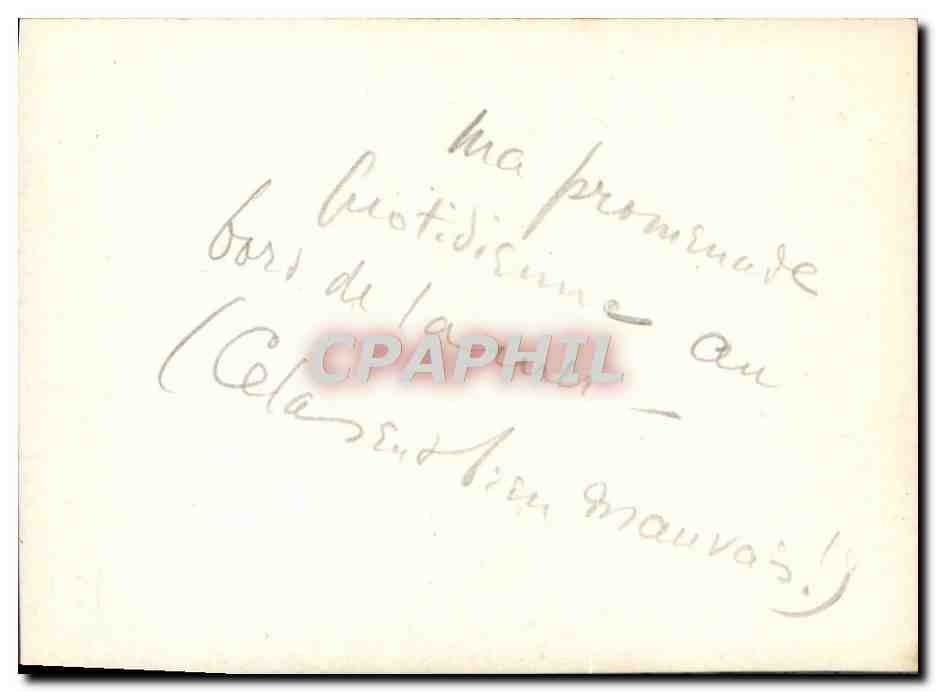 Ma promenade
quotidienne au
bord de la
CPAPHIL
(Cela sent bien mauvais!)